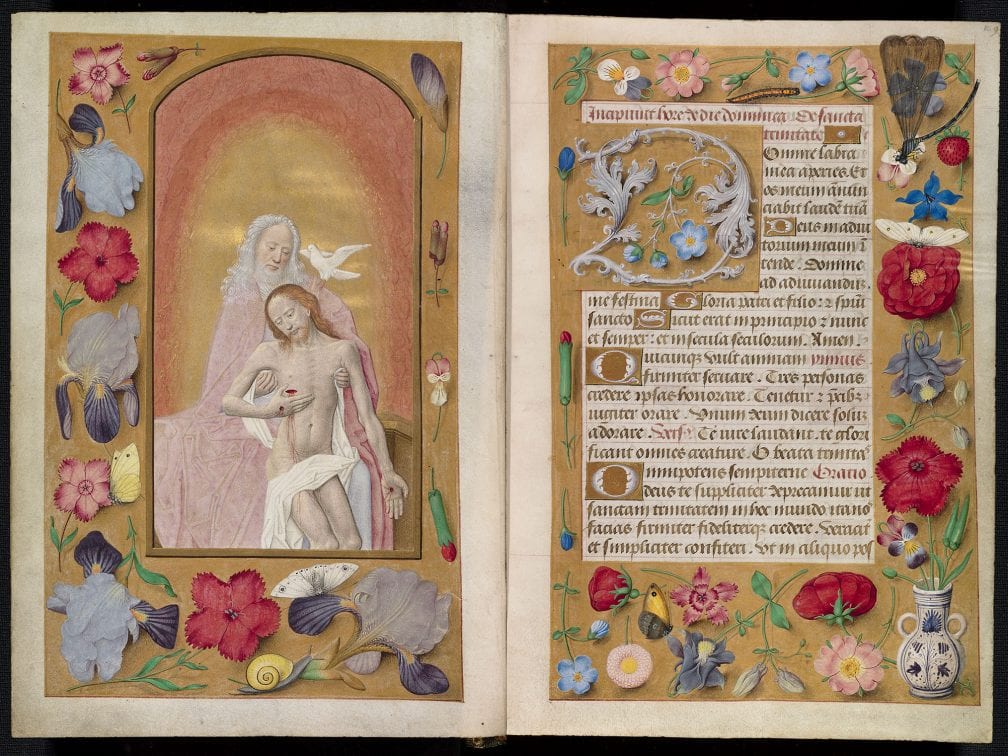 Incipiunt hore de die dominica De sancta
trinitate
Domine labia
mea aperies. Et
os meum annun
ciabit laudē tuā
Deus in adiu
torium meum ī
tende. Domine
ad adiuuandū
me festina Gloria patri et filio: ⁊ spūi
sancto Sicut erat in principio ⁊ nunc
et semper: et in secula seculorum. Amen.
Quicunque vult animam primus
firmiter seruare. Tres personas
credere ipsas honorare. Tenetur ⁊ p̄cib⁹
iugiter orare. Vnum deum dicere solū
adorare. Vers⁹. Te iure laudant. te glori
ficant omnes creature. O beata trinitas
Omnipotens sempiterne Oratio
deus te suppliciter deprecamur ut
sanctam trinitatem in hoc mundo ita nos
facias firmiter fideliterqꝫ credere. veraciter
et simpliciter confiteri. Vt in aliquo pos